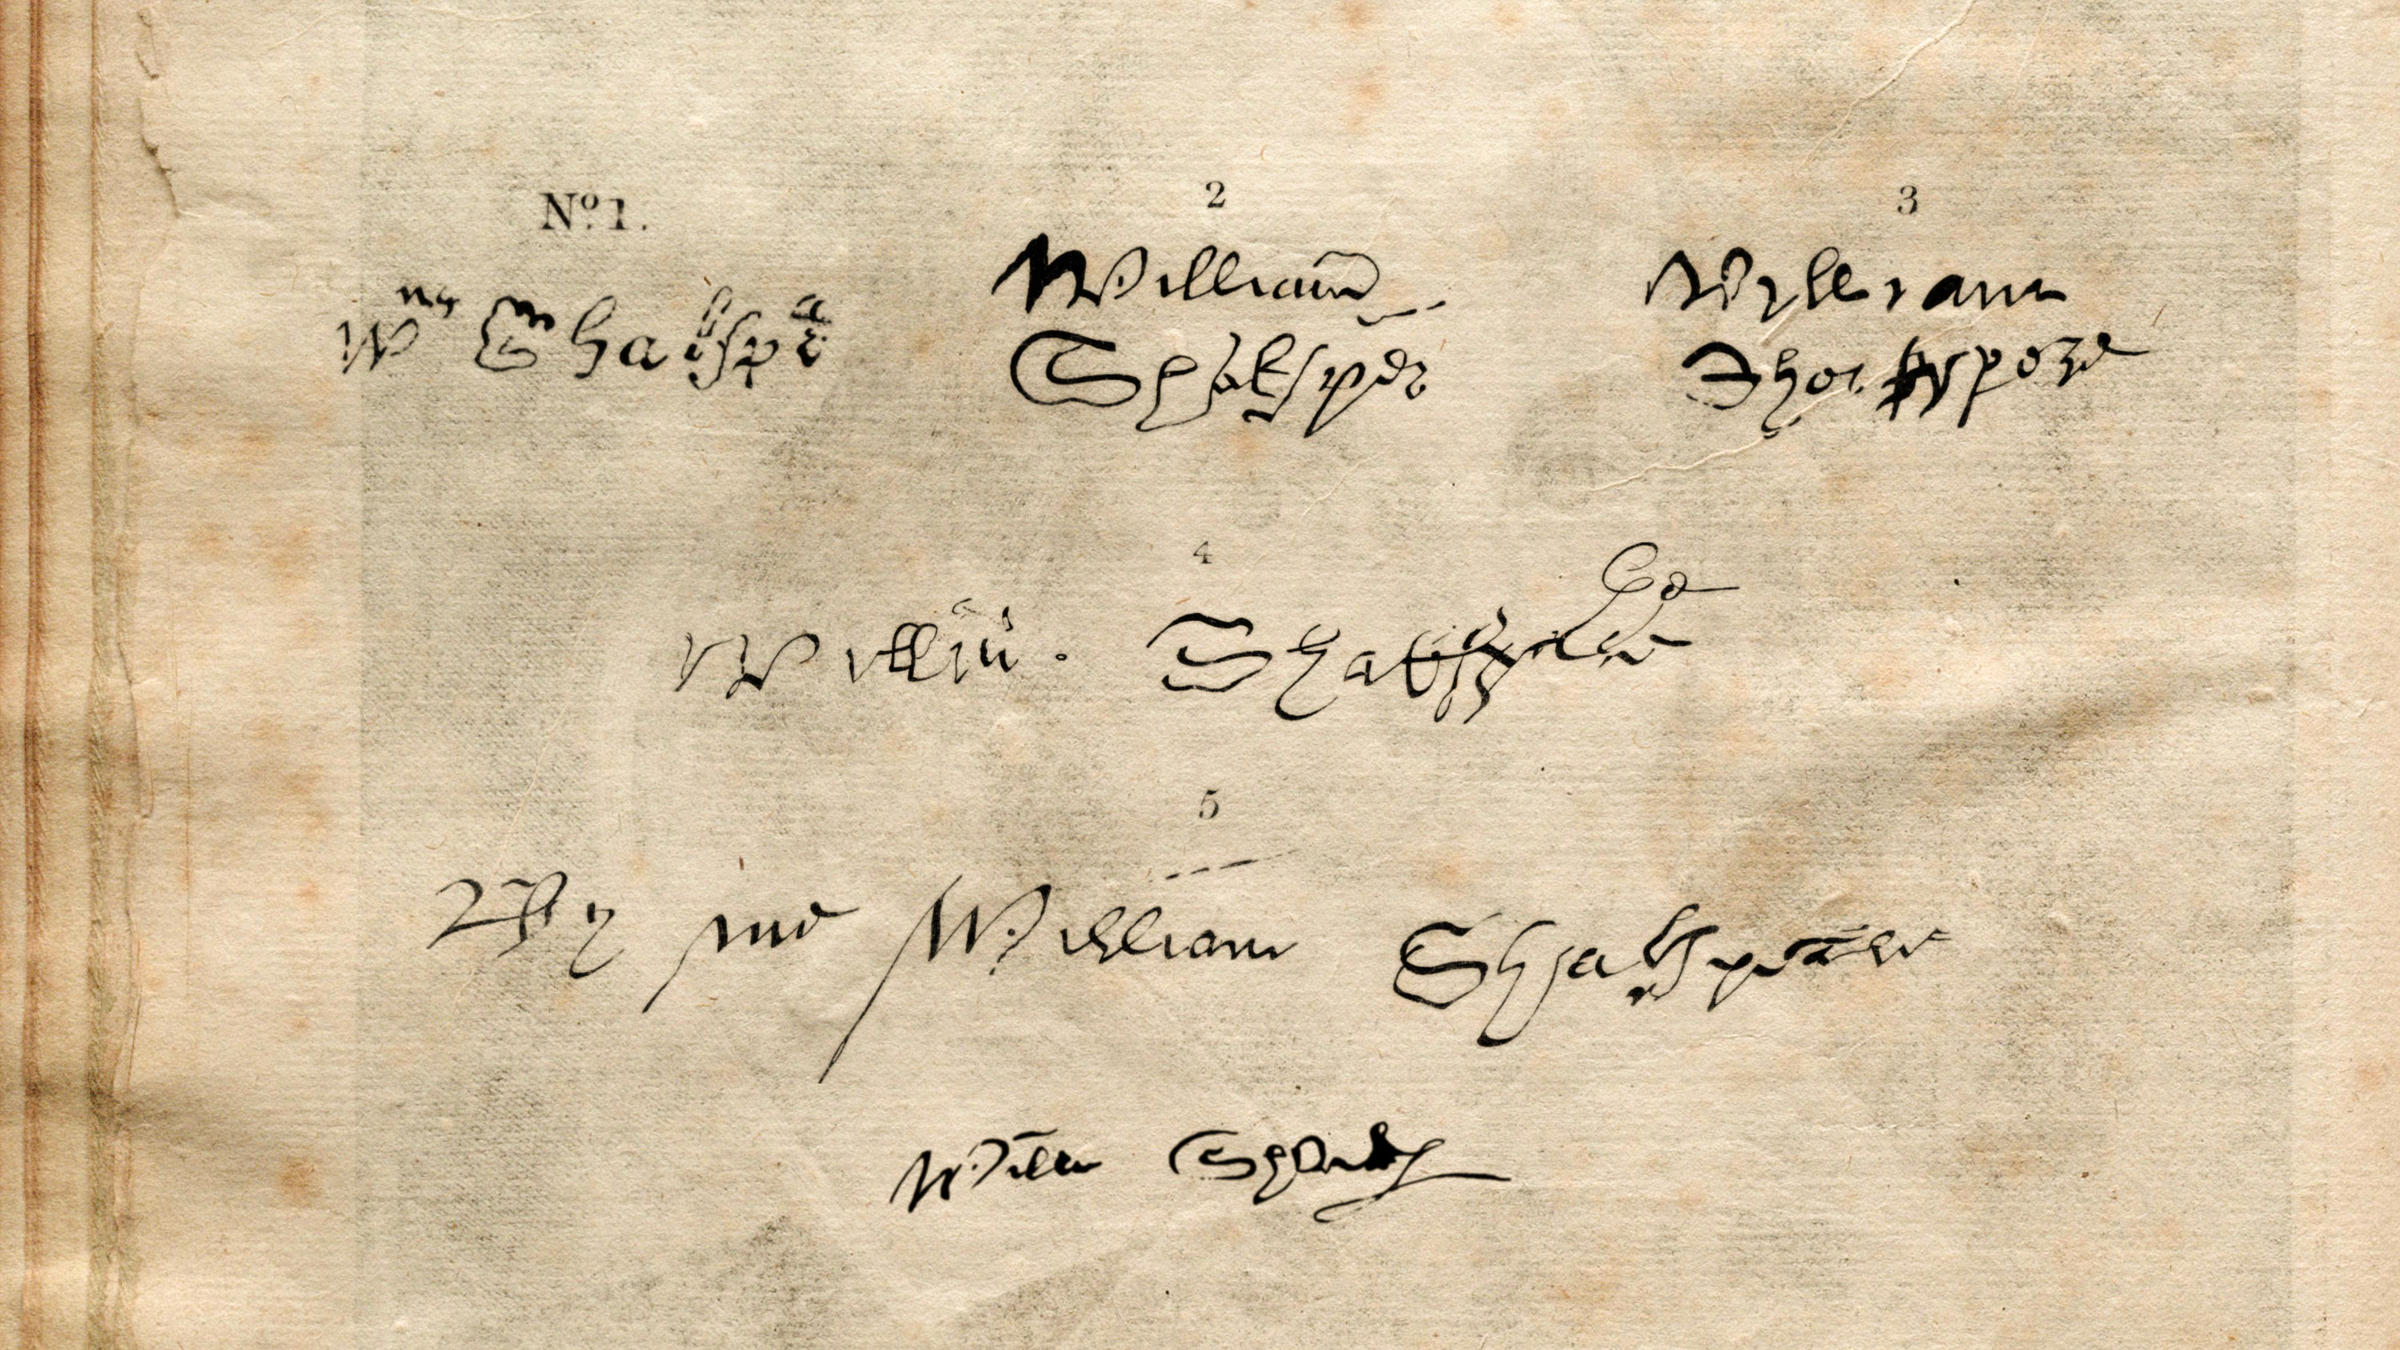 Nº 1. 2 3
Wm Shakspē William Shaksper William Shakspere
4
Willm. Shakspere
5
By me William Shakspeare